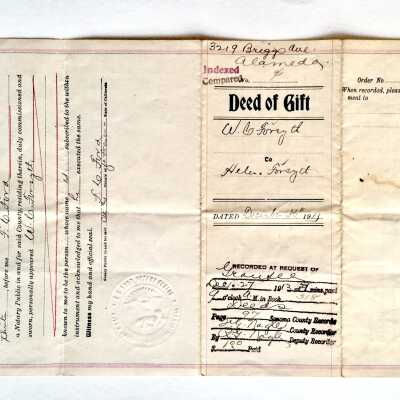 3219 Briggs Ave.
Alameda
Indexed
Compared
Deed of Gift
W C Forsyth
to
Helen Forsyth
DATED
RECORDED AT REQUEST OF
Grantee
Dec. 27 191 mins. past
9 o'clock A M. in Book 318
of Deeds
Page 97
Sonoma County Records
County Recorder
By Deputy Recorder
$ Paid
Order No
When recorded, please
mail to
before me
a Notary Public in and for said County, residing therein, duly commissioned and
sworn, personally appeared W C Forsyth
known to me to be the person whose name subscribed to the within
instrument and acknowledged to me that he executed the same.
Witness my hand and official seal.